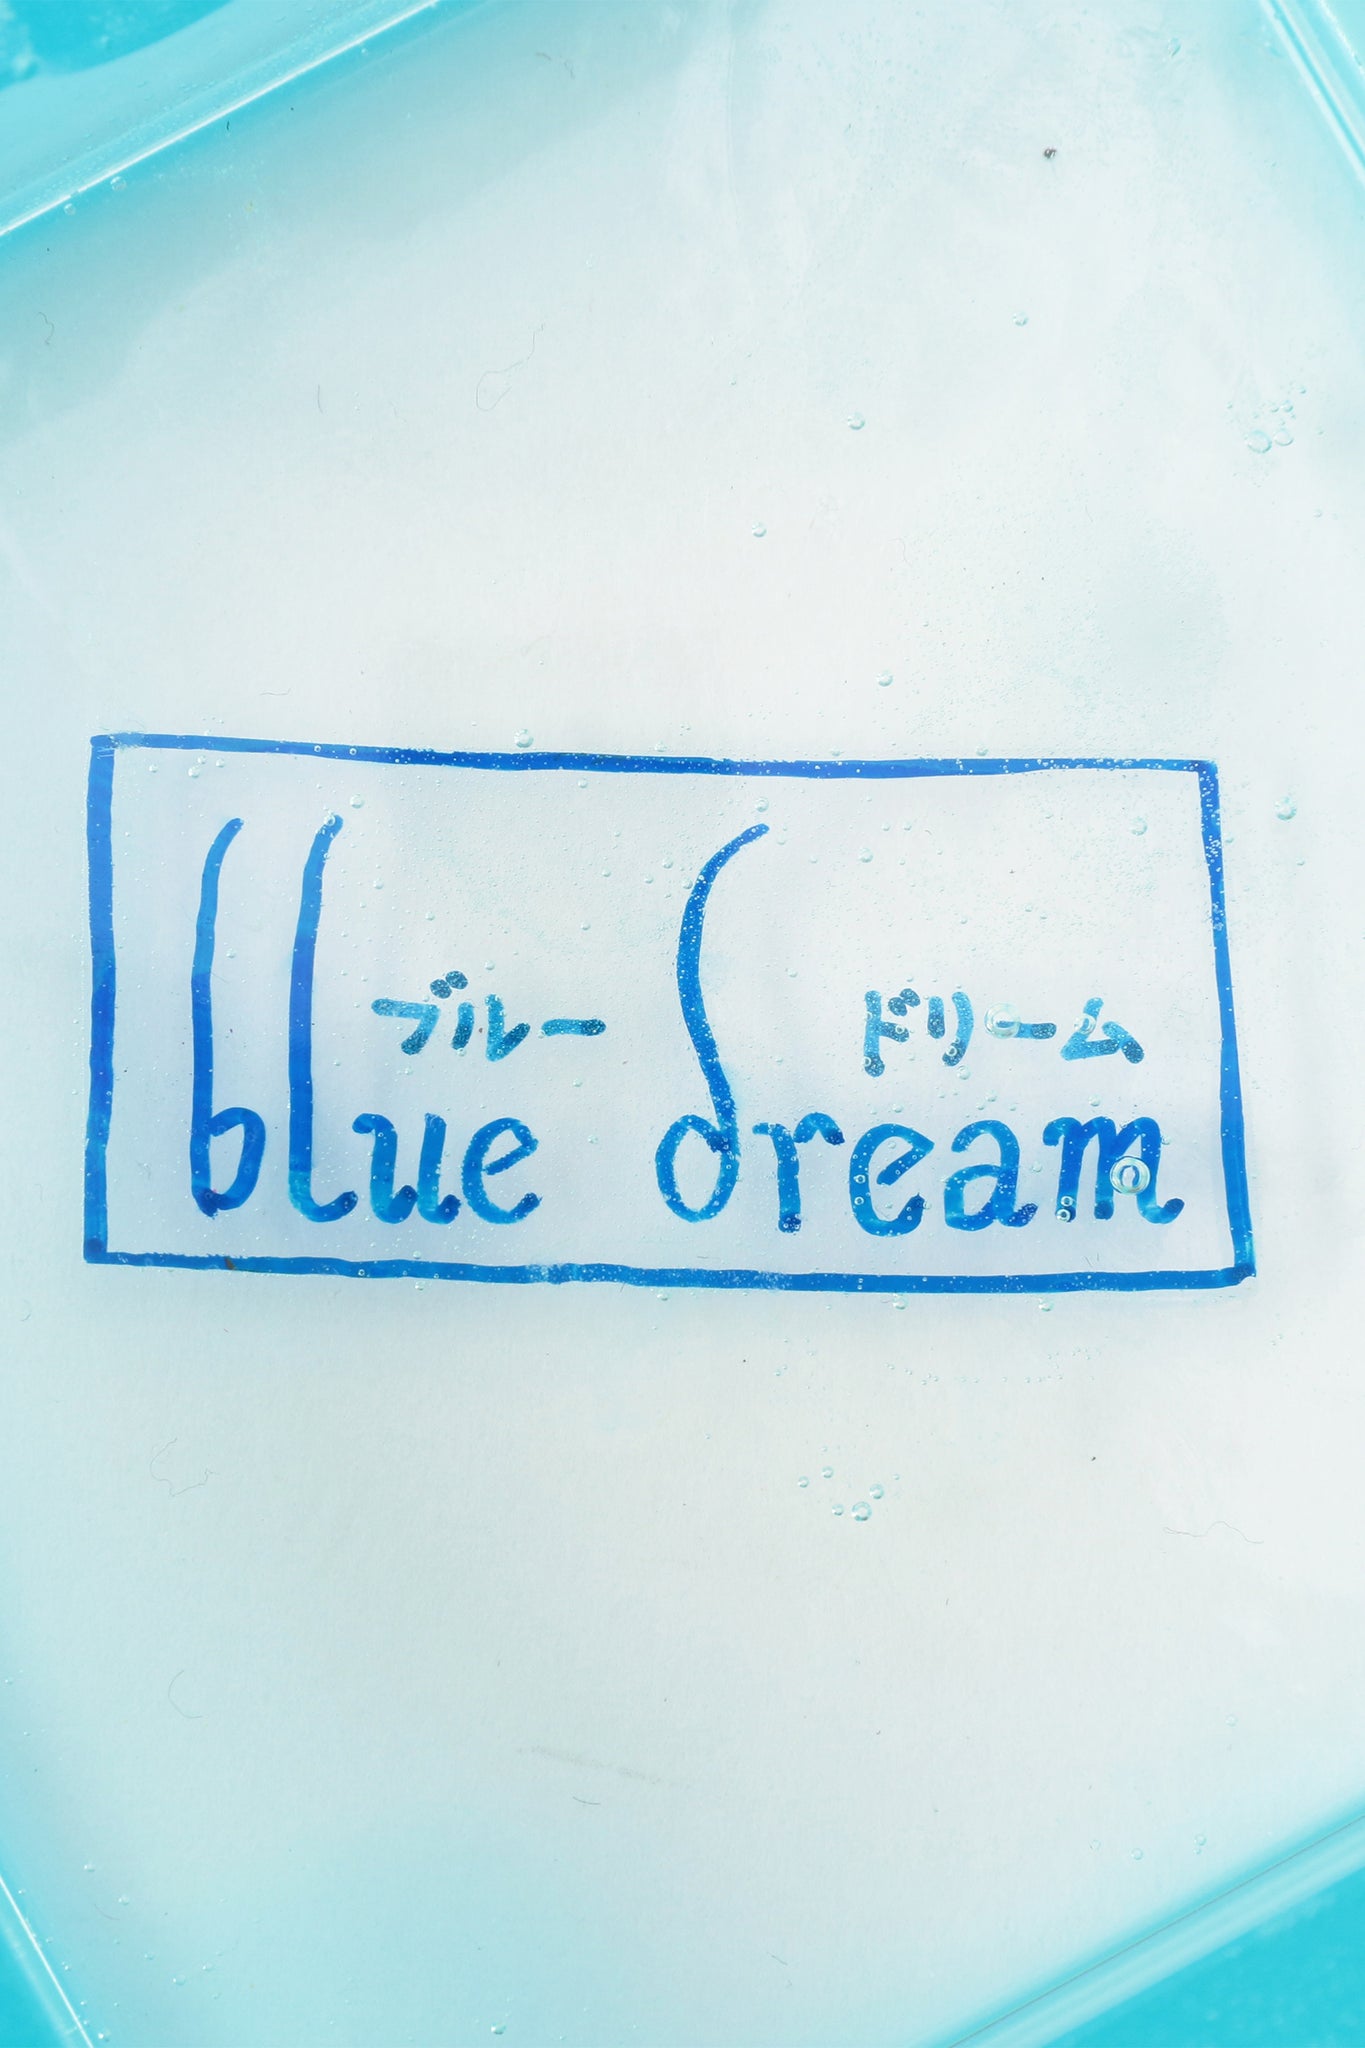 ブルー ドリーム
blue dream